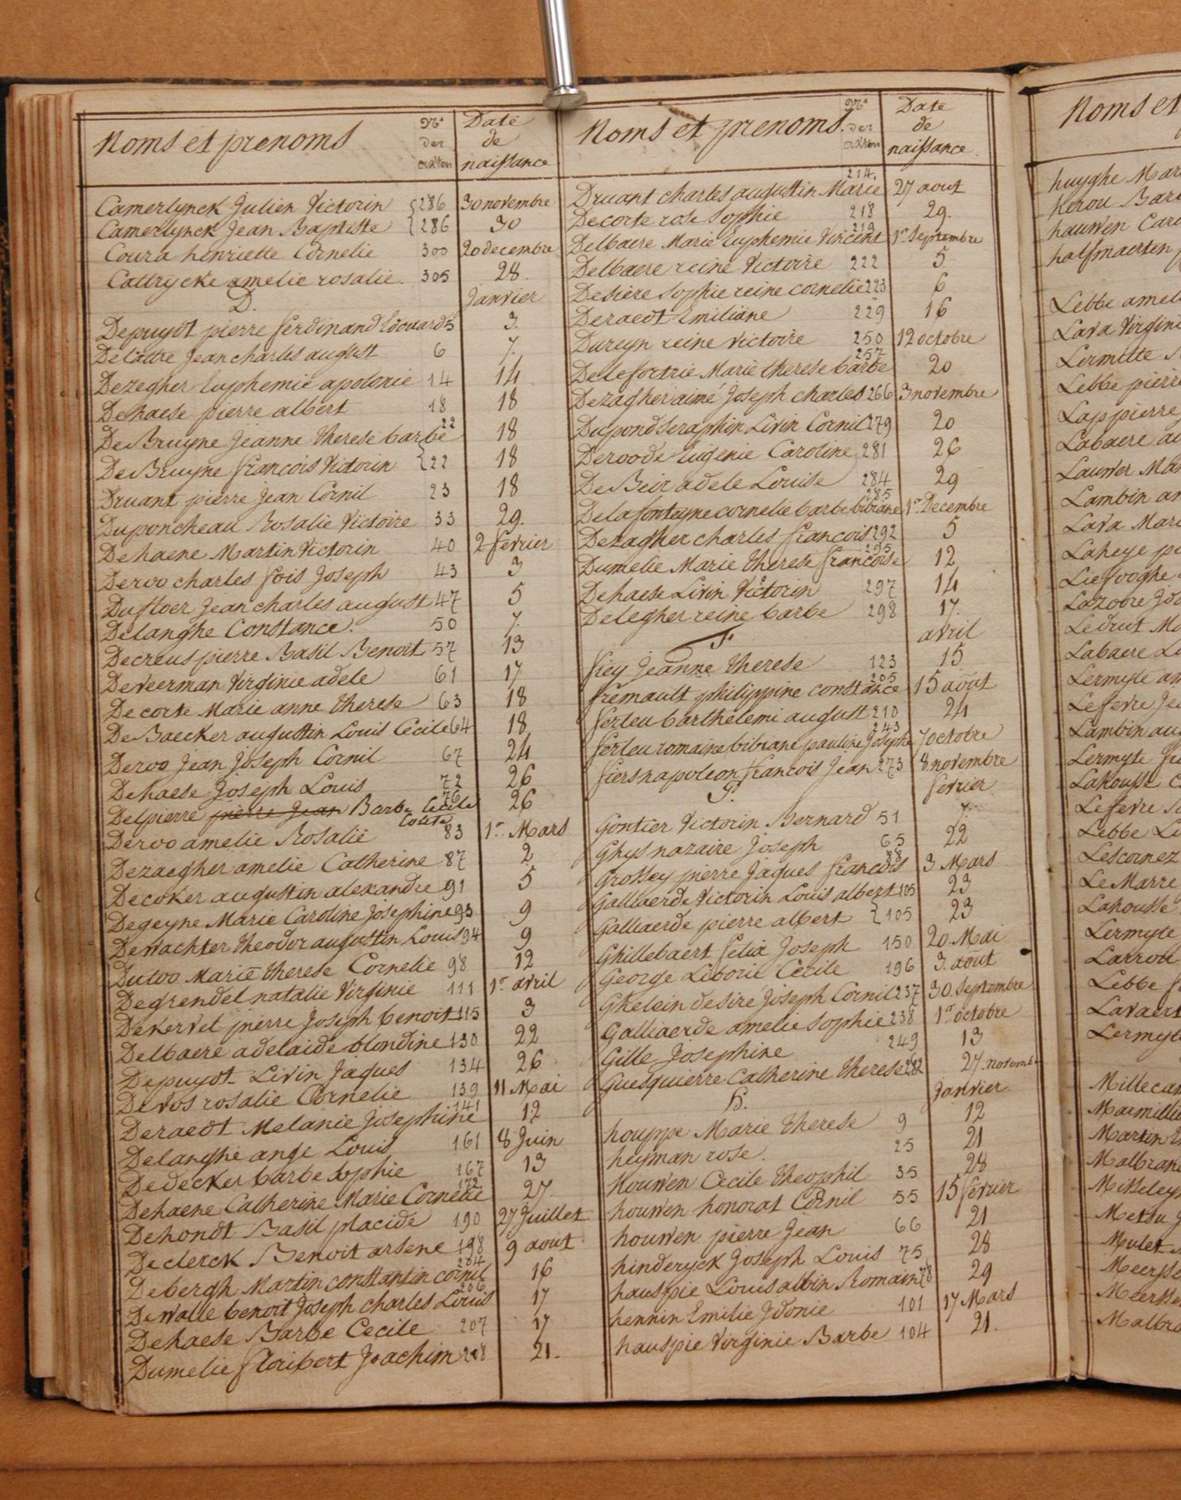 Noms et prenoms
Nos des actes
Date de naissance
Camerlynck Julien Victorin 286 30 novembre
Camerlynck Jean Baptiste 286 30
Coura henriette Cornelie 300 20 decembre
Cattrycke amelie rosalie 305 28
D. Janvier
Depuydt pierre ferdinand Edouard 5 3.
Delabre Jean charles august 6 7.
Dezegher Euphemie apolonie 14 14
Dehaese pierre albert 18 18
De Bruyne Jeanne therese barbe 22 18
De Bruyne francois Victorin 22 18
Druant pierre Jean Cornil 23 18
Duponcheau Rosalie Victoire 33 29.
Dehaene Martin Victorin 40 2 fevrier
Deroo charles fois Joseph 43 3
Dufloer Jean charles august 47 5
Delanghe Constance. 50 7.
Decreus pierre Basil Benoit 57 13
Deveerman Virginie adele 61 17
Decorte Marie anne therese 63 18
De Baecker augustin Louis Cecile 64 18
Deroo Jean Joseph Cornil 67 24
Dehaese Joseph Louis 72 26
Delpierre pierre Jean Barbe Cecile 76 26
Deroo amelie Rosalie 83 1er Mars
Dezaegher amelie Catherine 87 2
Decoker augustin alexandre 91 5
Degeyne Marie Caroline Josephine 93 9
Dewachter theodor augustin Louis 94 9
Dutoo Marie therese Cornelie 98 12
Degrendel natalie Virginie 111 1er avril
Devervel pierre Joseph benoit 115 3
Delbaere adelaide blondine 130 22
Depuydt Livin Jaques 134 26
Devos rosalie Cornelie 139 11 Mai
Deraedt Melanie Josephine 141 12
Delanghe ange Louis 161 8 Juin
Dedecker barbe sophie 167 13
Dehaene Catherine Marie Cornelie 172 27
Dehondt Basil placide 190 27 Juillet
Declerck Benoit arsene 198 9 aout
Debergh Martin constantin cornil 204 16
Dewalle benoit Joseph charles Louis 206 17
Dehaese Barbe Cecile 207 17
Dumelie floribert Joachim 208 21.
Noms et prenoms.
Nos des actes
Date de naissance.
Druant charles augustin Marie 214. 27 aout
Decorte rose Sophie 218 29.
Delbaere Marie Euphemie Vincent 219 1er Septembre
Delbaere reine Victoire 222 5
Desiere Sophie reine cornelie 223 6
Deraedt Emiliane 229 16
Duruyn reine Victoire 250 12 octobre
Delefortrie Marie therese barbe 257 20
Dezagher aimé Joseph charles 266 3 novembre
Dupond seraphin Livin Cornil 279 20
Deroode Eugenie Caroline 281 26
De Beir adele Louise 284 29
Delafonteyne cornelie barbe bibiane 285 1er Decembre
Dezagher charles francois 292 5
Dumelie Marie therese francoise 295 12
Dehaese Livin Victorin 297 14
Delegher reine barbe 298 17.
F avril
ficy Jeanne therese 123 15
fremault philippine constance 205 15 août
ferleu barthelemi august 210 21
ferleu romaine bibiane pauline Josephe 243 7 octobre
fiers napoleon francois Jean 273 8 novembre
G. fevrier
Gontier Victorin Bernard 51 7.
Ghys nazaire Joseph 65 22
Grossey pierre Jaques francois 88 3 Mars
Galliaerde Victorin Louis albert 105 23
Galliaerde pierre albert 105 23
Ghillebaert felix Joseph 150 20 Mai
George Liborie Cecile 196 3. aout
Ghelein desire Joseph Cornil 237 30 Septembre
Galliaerde amelie Sophie 238 1er octobre
Gille Josephine 249 13
Guesquierre Catherine therese 282 27 novemb
H. Janvier
houppe Marie Therese 9 12
heyman rose. 25 21
Houwen Cecile theophil 35 28
houwen honorat Cornil 55 15 fevrier
houwen pierre Jean 66 21
hinderyck Joseph Louis 75 28
hauspie Louis albin Romain 78 29
hennin Emilie Idonie 101 17 Mars
hauspie Virginie Barbe 104 21.
Noms et
huyghe Mar
Kerou Bar
hauwen Caro
halfmaerten
Lebbe ameli
Lava Virgini
Lermitte
Lebbe pierre
Lappierre
Labaere au
Lauwer Ma
Lambin an
Lava Mari
Laheye pi
Liefooghe
Lazoore Ido
Ledrut Ma
Labaere Le
Lermyte am
Lefevre Je
Lambin au
Lermyte Ju
Lahousse C
Lefevre
Lebbe Le
Lescornez
Le Marre
Lahousse
Lermyte
Larrou
Lebbe
Lavaert
Lermyte
Millecam
Maimillie
Martin E
Malbranc
Misseley
Metsu J
Mulet
Meersse
Meersse
Malbra